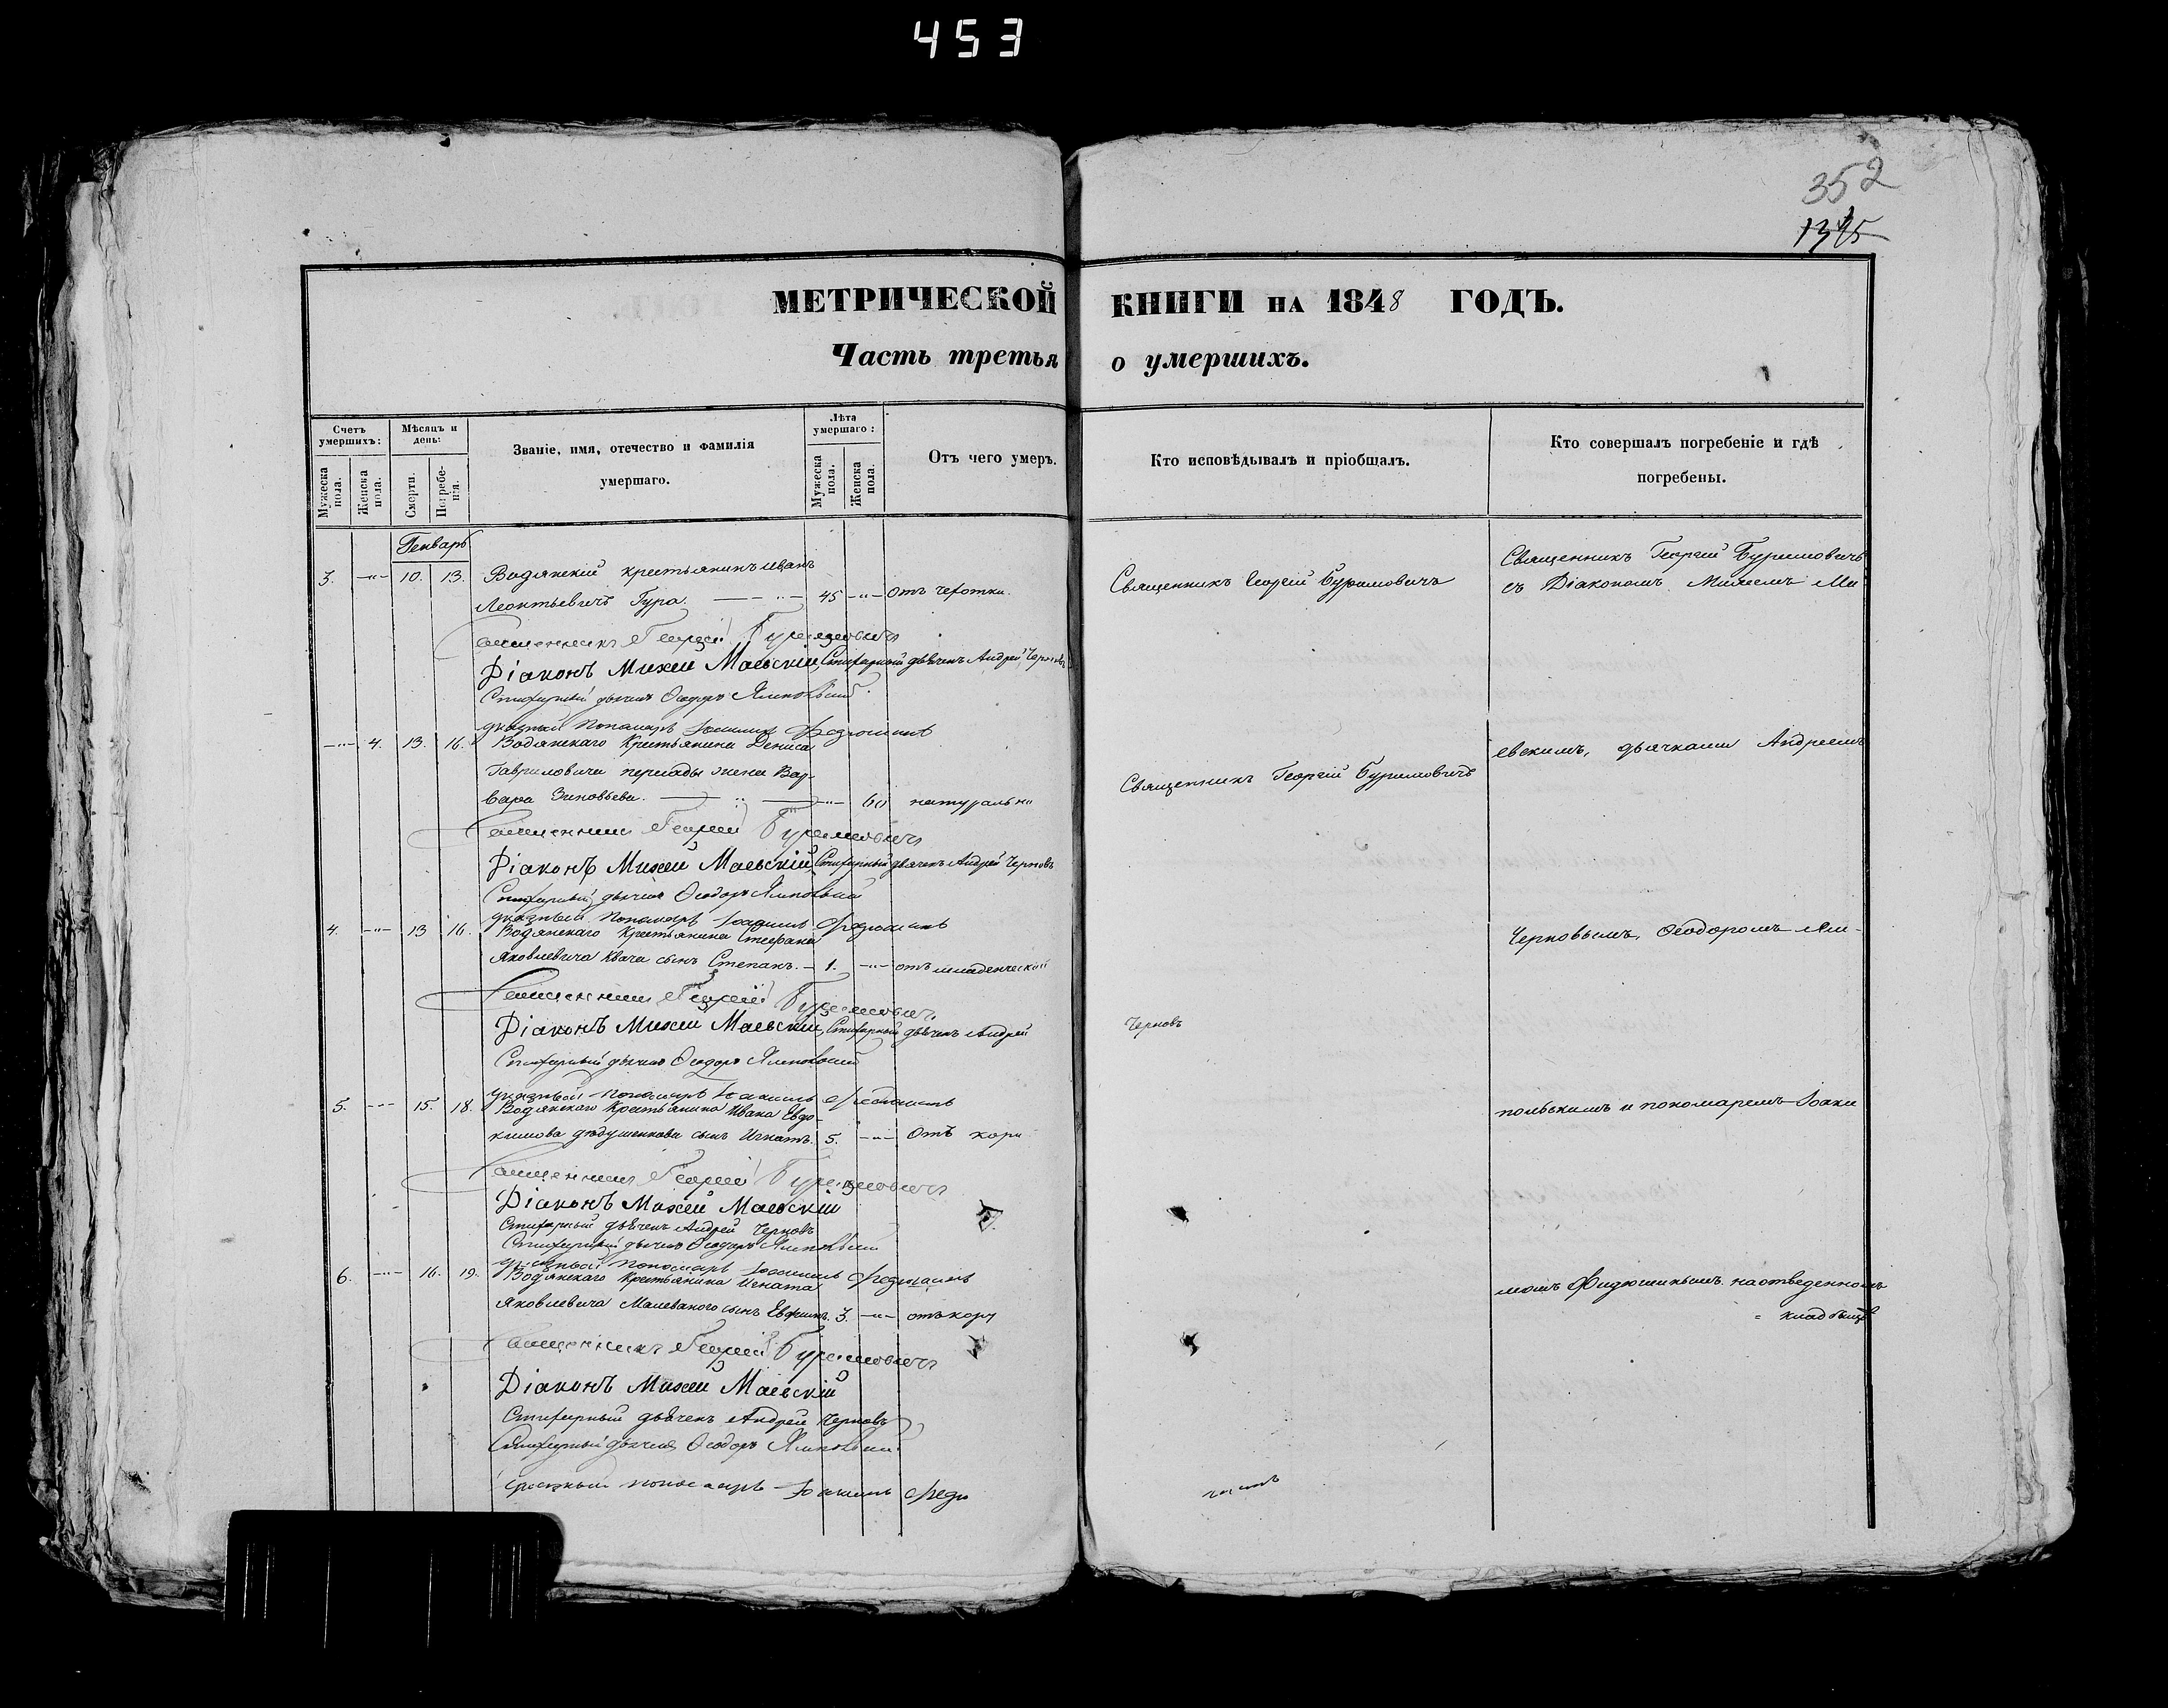 453
352
1345
МЕТРИЧЕСКОЙ КНИГИ НА 1848 ГОДЪ.
Часть третья о умершихъ.
Счетъ умершихъ:
Мужеска пола.
Женска пола.
Мѣсяцъ и день:
Смерти.
Погребенія.
Званіе, имя, отечество и фамилія
умершаго.
Лѣта умершаго:
Мужеска пола.
Женска пола.
Отъ чего умеръ.
Кто исповѣдывалъ и пріобщалъ.
Кто совершалъ погребеніе и гдѣ
погребены.
Генварь
3. —"— 10. 13. Водянскій крестьянинъ Иванъ
Леонтьевичъ Гура. 45 —"— Отъ чехотки.
Священникъ Георгій Буримовичъ
Священникъ Георгій Буримовичъ
съ Діакономъ Михеемъ Ма
Священникъ Георгій Буримовичъ
Діаконъ Михей Маевскій, Стихарный дьячекъ Андрей Черновъ
Стихарный дьячекъ Ѳеодоръ Ямпольскій
указный Пономарь Іоакимъ
—"— 4. 13. 16. Водянскаго Крестьянина Дениса
Гавриловича жена Вар-
вара Зиновьева. —"— 60 натурально
Священникъ Георгій Буримовичъ
евскимъ, дьячками Андреемъ
Священникъ Георгій Буримовичъ
Діаконъ Михей Маевскій, Стихарный дьячекъ Андрей Черновъ
Стихарный дьячекъ Ѳеодоръ Ямпольскій
указный Пономарь Іоакимъ
4. —"— 13 16. Водянскаго Крестьянина Стефана
Яковлевича Квачи сынъ Степанъ. 1. —"— отъ младенческой
Черновымъ, Ѳеодоромъ Ям-
Священникъ Георгій Буримовичъ
Діаконъ Михей Маевскій, Стихарный дьячекъ Андрей Черновъ
Стихарный дьячекъ Ѳеодоръ Ямпольскій
указный Пономарь Іоакимъ
5. —"— 15. 18. Водянскаго Крестьянина Ивана Евдо-
кимова сынъ Игнатъ. 5. —"— Отъ кори
польскимъ и пономаремъ Іоаки
Священникъ Георгій Буримовичъ
Діаконъ Михей Маевскій
Стихарный дьячекъ Андрей Черновъ
Стихарный дьячекъ Ѳеодоръ Ямпольскій
указный Пономарь Іоакимъ
6. —"— 16. 19. Водянскаго Крестьянина Игната
Яковлевича Малеваного сынъ Евфимъ. 3. —"— отъ кори
момъ на отведенномъ
кладбищѣ
Священникъ Георгій Буримовичъ
Діаконъ Михей Маевскій
Стихарный дьячекъ Андрей Черновъ
Стихарный дьячекъ Ѳеодоръ Ямпольскій
указный пономарь Іоакимъ